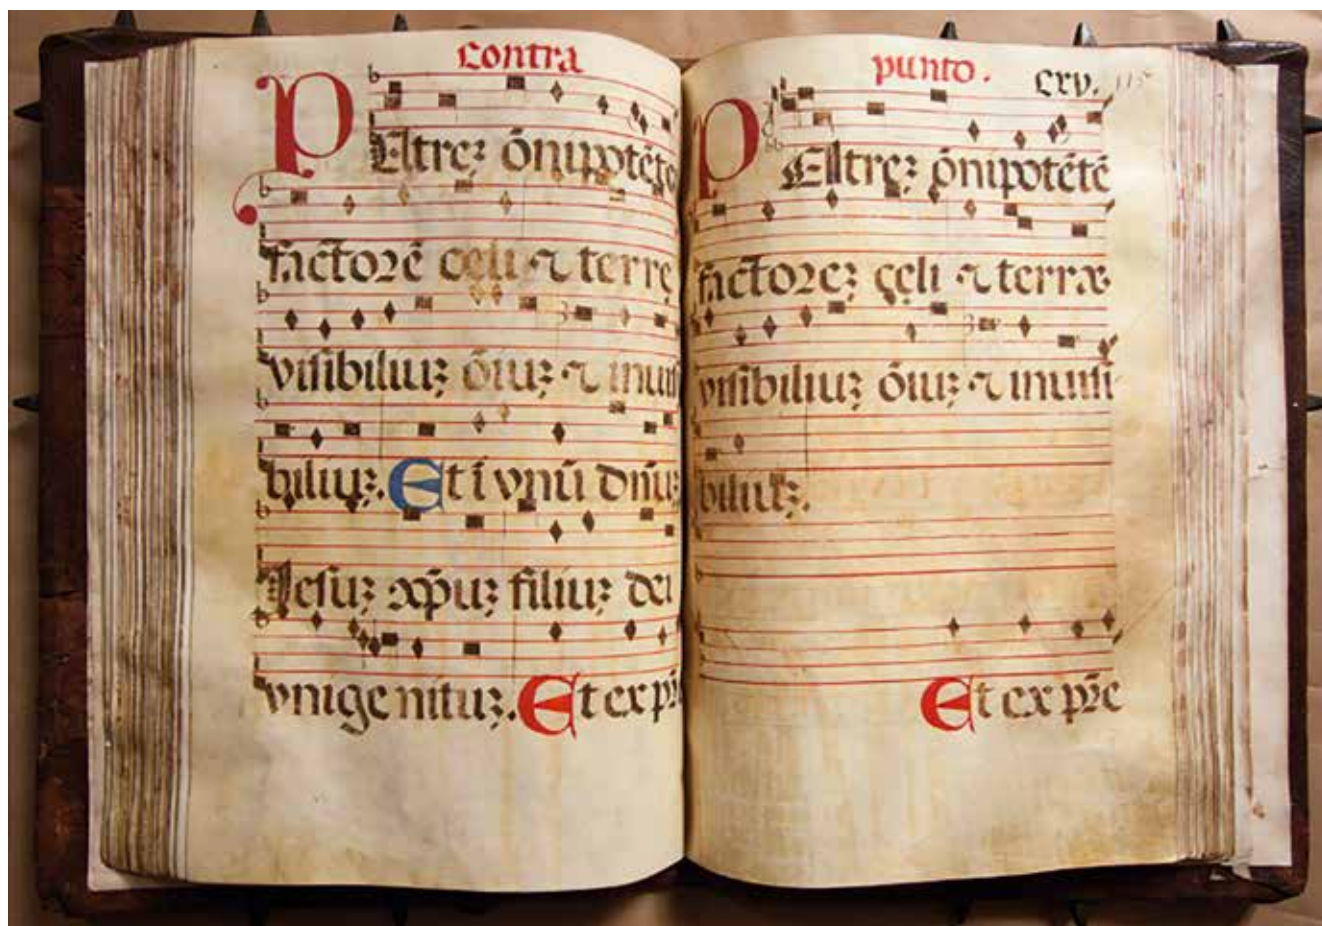 Contra
PAtrēʒ ōnipotēte
factorē celi ⁊ terre
visibiliuʒ ōiuʒ ⁊ inuisi
biliuʒ. Et ī vnū dn̄uʒ
Jesuʒ xp̄uʒ filiuʒ dei
vnigenituʒ. Et ex pr̄e
punto. cxv. 115
PAtreʒ ōnipotētē
factoreʒ celi ⁊ terræ
visibiliuʒ ōiuʒ ⁊ inuisi
biliuʒ.
Et ex pr̄e